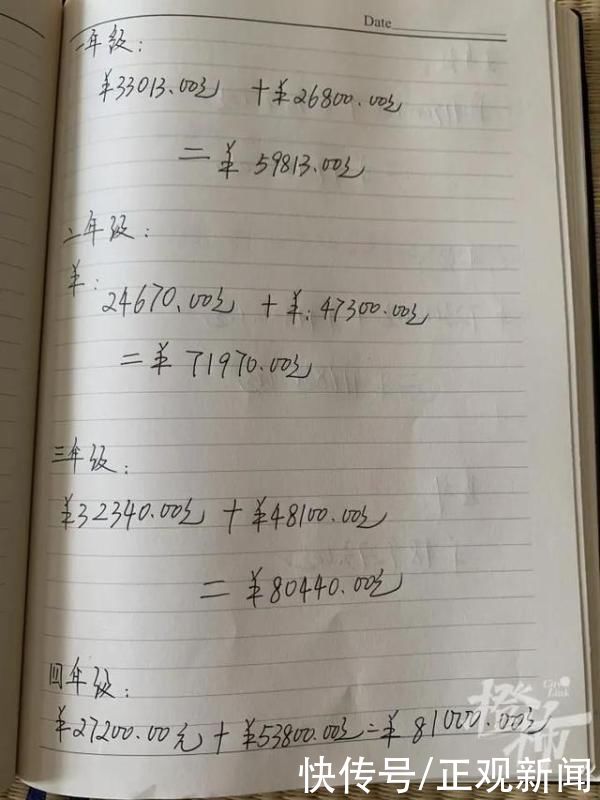 Date
一年级:
¥33013.00元 +¥26800.00元
=¥ 59813.00元
二年级:
¥:
24670.00元 +¥:47300.00元
=¥ 71970.00元
三年级:
¥32340.00元 +¥48100.00元
=¥80440.00元
四年级:
¥27200.00元+¥53800.00元=¥81000.00元
橙柿
City Link
快传号/正观新闻